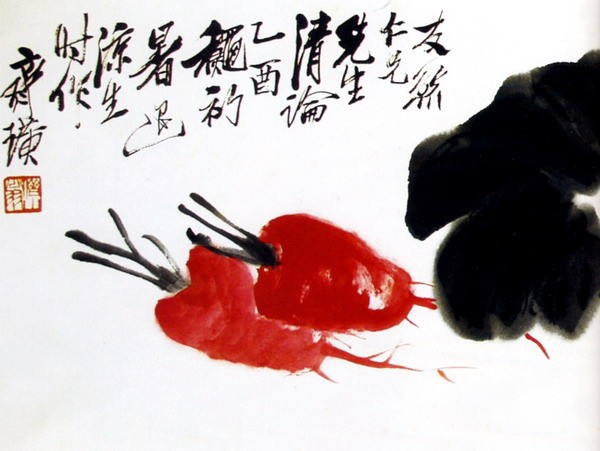 友
仁兄
先生
清論
乙酉
龝初
暑退
涼生
时作
齊璜